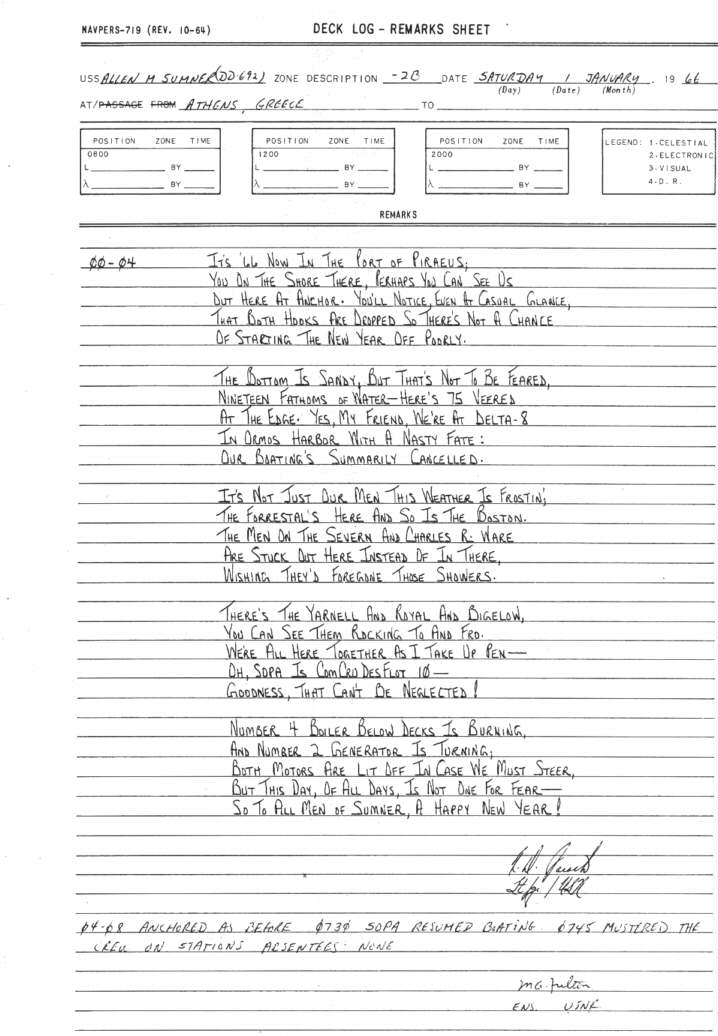 NAVPERS-719 (REV. 10-64) DECK LOG - REMARKS SHEET
USS ALLEN M SUMNER (DD-692) ZONE DESCRIPTION -2B DATE SATURDAY 1 JANUARY, 19 66
(Day) (Date) (Month)
AT/PASSAGE FROM ATHENS, GREECE TO
POSITION ZONE TIME POSITION ZONE TIME POSITION ZONE TIME LEGEND: 1-CELESTIAL
0800 1200 2000 2-ELECTRONIC
L BY L BY L BY 3-VISUAL
λ BY λ BY λ BY 4-D. R.
REMARKS
00-04 IT'S '66 NOW IN THE PORT OF PIRAEUS;
YOU ON THE SHORE THERE, PERHAPS YOU CAN SEE US
OUT HERE AT ANCHOR. YOU'LL NOTICE, EVEN AT CASUAL GLANCE,
THAT BOTH HOOKS ARE DROPPED SO THERE'S NOT A CHANCE
OF STARTING THE NEW YEAR OFF POORLY.
THE BOTTOM IS SANDY, BUT THAT'S NOT TO BE FEARED,
NINETEEN FATHOMS OF WATER—HERE'S 75 VEERED
AT THE EDGE. YES, MY FRIEND, WE'RE AT DELTA-8
IN ORMOS HARBOR WITH A NASTY FATE:
OUR BOATING'S SUMMARILY CANCELLED.
IT'S NOT JUST OUR MEN THIS WEATHER IS FROSTIN';
THE FORRESTAL'S HERE AND SO IS THE BOSTON.
THE MEN ON THE SEVERN AND CHARLES R. WARE
ARE STUCK OUT HERE INSTEAD OF IN THERE,
WISHING THEY'D FOREGONE THOSE SHOWERS.
THERE'S THE YARNELL AND ROYAL AND BIGELOW,
YOU CAN SEE THEM ROCKING TO AND FRO.
WE'RE ALL HERE TOGETHER AS I TAKE UP PEN—
OH, SOPA IS COMCRUDESFLOT 10—
GOODNESS, THAT CAN'T BE NEGLECTED!
NUMBER 4 BOILER BELOW DECKS IS BURNING,
AND NUMBER 2 GENERATOR IS TURNING;
BOTH MOTORS ARE LIT OFF IN CASE WE MUST STEER,
BUT THIS DAY, OF ALL DAYS, IS NOT ONE FOR FEAR—
SO TO ALL MEN OF SUMNER, A HAPPY NEW YEAR!
04-08 ANCHORED AS BEFORE 0730 SOPA RESUMED BOATING. 0745 MUSTERED THE
CREW ON STATIONS ABSENTEES: NONE
M.G. Fulton
ENS. USNR